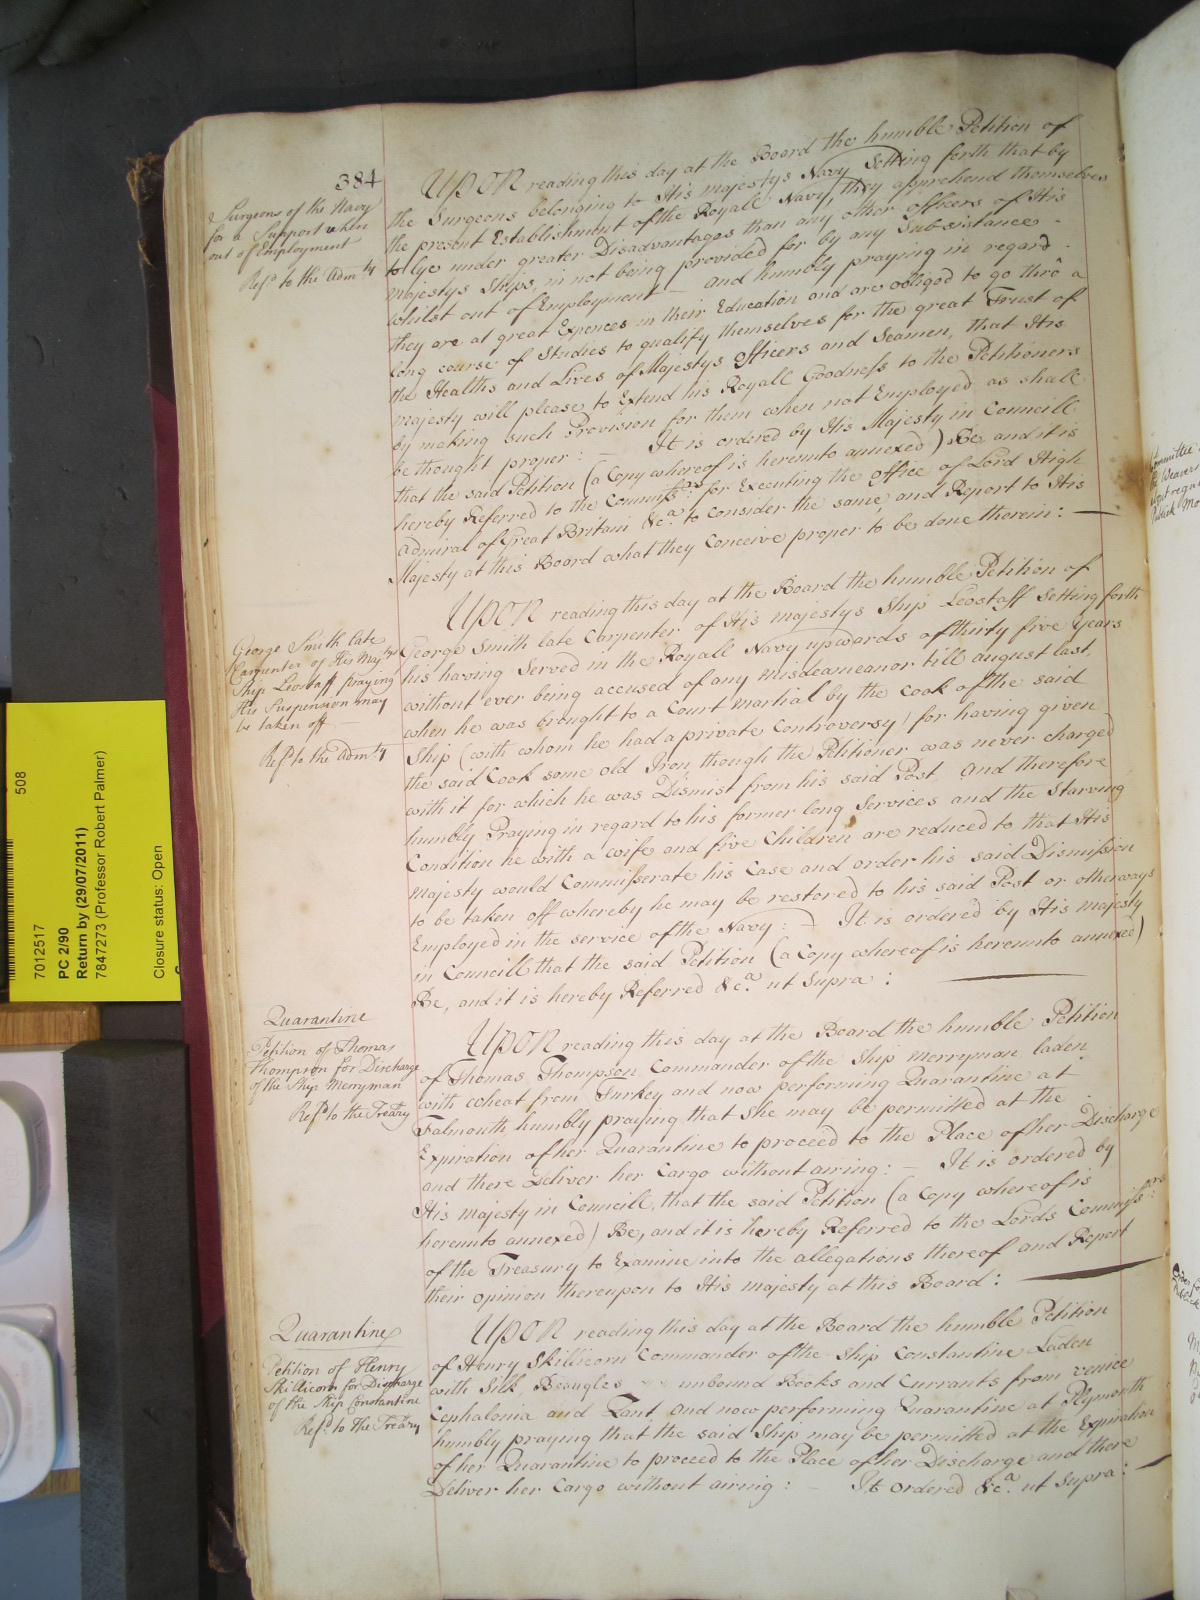 384
Surgeons of the Navy
for a Support when
out of Employment
Refd. to the Admty
UPON reading this day at the Board the humble Petition of
the Surgeons belonging to His Majestys Navy Setting forth that by
the present Establishment of the Royall Navy, they apprehend themselves
to lye under greater Disadvantages than any other officers of His
Majestys Ships, in not being provided for by any Subsistance -
whilst out of Employment - and humbly praying in regard -
they are at great Expences in their Education and are obliged to go thrô a
long course of Studies to qualify themselves for the great Trust of
the Healths and Lives of Majestys Officers and Seamen, that His
Majesty will please to Extend his Royall Goodness to the Petitioners
by making such Provision for them when not Employed as shall
be thought proper: - It is ordered by His Majesty in Councill
that the said Petition (a Copy whereof is hereunto annexed) Be, and it is
hereby Referred to the Commissrs. for Executing the office of Lord High
Admiral of Great Britain &ca. to Consider the same, and Report to His
Majesty at this Board what they Conceive proper to be done therein: -
George Smith late
Carpenter of His Majtys
Ship Leostaff praying
His Suspension may
be taken off -
Refd. to the Admty
UPON reading this day at the Board the humble Petition of
George Smith late Carpenter of His Majestys Ship Leostaff Setting forth
his having Served in the Royall Navy upwards of thirty five Years
without ever being accused of any Misdeameanor till August last,
when he was brought to a Court Martial by the Cook of the said
Ship (with whom he had a private Controversy) for having given
the said Cook some old Iron, though the Petitioner was never charged
with it for which he was Dismist from his said Post And therefore
humbly Praying in regard to his former long Services and the Starving
Condition he with a wife and five Children are reduced to that His
Majesty would Commisserate his Case and order his said Dismission
to be taken off whereby he may be restored to his said Post or otherways
Employed in the service of the Navy: - It is ordered by His Majesty
in Councill that the said Petition (a Copy whereof is hereunto annexed)
Be, and it is hereby Referred &ca. ut Supra:
Quarantine
Petition of Thomas
Thompson for Discharge
of the Ship Merryman
Refd. to the Treary
UPON reading this day at the Board the humble Petition
of Thomas Thompson Commander of the Ship Merryman laden
with wheat from Turkey and now performing Quarantine at
Falmouth, humbly praying that she may be permitted at the
Expiration of her Quarantine to proceed to the Place of her Discharge
and there Deliver her Cargo without airing: - It is ordered by
His Majesty in Councill, that the said Petition (a Copy whereof is
hereunto annexed) Be, and it is hereby Referred to the Lords Commissrs.
of the Treasury to Examine into the allegations thereof and Report
their opinion thereupon to His Majesty at this Board:
Quarantine
Petition of Henry
Skillicorn for Discharge
of the Ship Constantine
Refd. to the Treary
UPON reading this day at the Board the humble Petition
of Henry Skillicorn Commander of the Ship Constantine Laden
with Silk, Beaugles unbound Books and Currants from Venice
Cephalonia and Zant and now performing Quarantine at Plymouth
humbly praying that the said Ship may be permitted at the Expiration
of her Quarantine to proceed to the Place of her Discharge and there
Deliver her Cargo without airing: - It Ordered &ca. ut Supra: -
508
7012517
PC 2/90
Return by (29/07/2011)
7847273 (Professor Robert Palmer)
Closure status: Open
Committee